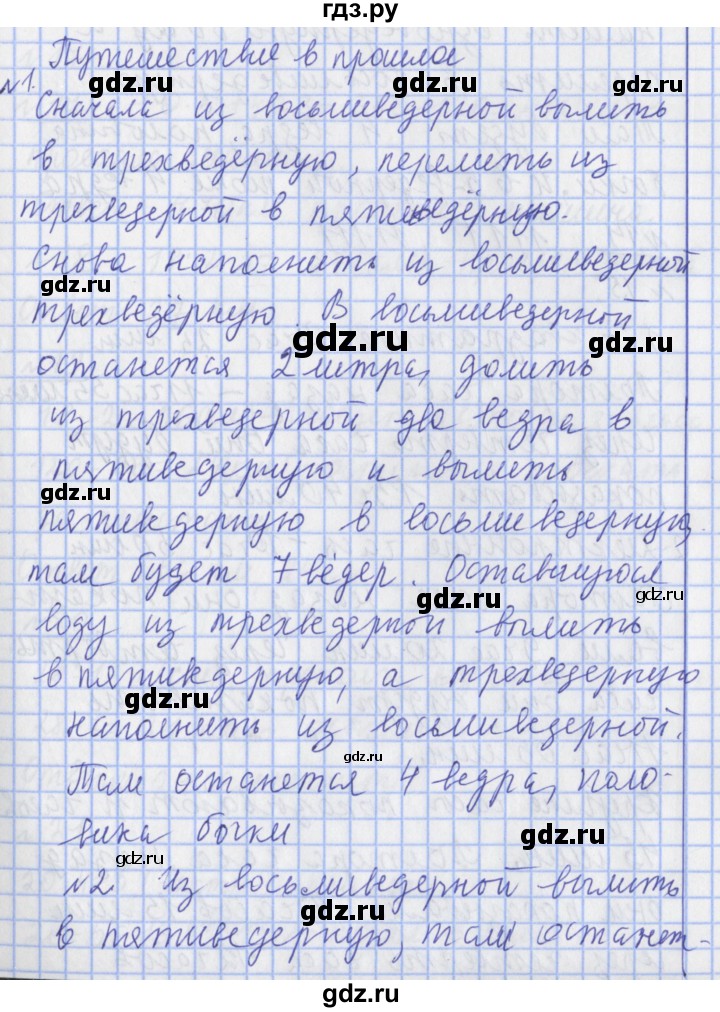 гдз.ру
Путешествие в прошлое
gdz.ru
gdz.ru
№1.
Сначала из восьмиведерной вылить
в трехведёрную, перелить из
gdz.ru
gdz.ru
трехведерной в пятиведёрную.
Снова наполнить из восьмиведерной
gdz.ru
трехведёрную. В восьмиведерной
gdz.ru
gdz.ru
останется 2 литра, долить
из трехведерной два ведра в
gdz.ru
пятиведерную и вылить
gdz.ru
пятиведерную в восьмиведерную,
gdz.ru
там будет 7 вёдер. Оставшуюся
gdz.ru
gdz.ru
воду из трехведерной вылить
в пятиведерную, а трехведерную
gdz.ru
gdz.ru
наполнить из восьмиведерной.
gdz.ru
Там останется 4 ведра, поло-
вина бочки
gdz.ru
gdz.ru
№2 Из восьмиведерной вылить
gdz.ru
в пятиведерную, там останет-
gdz.ru
gdz.ru